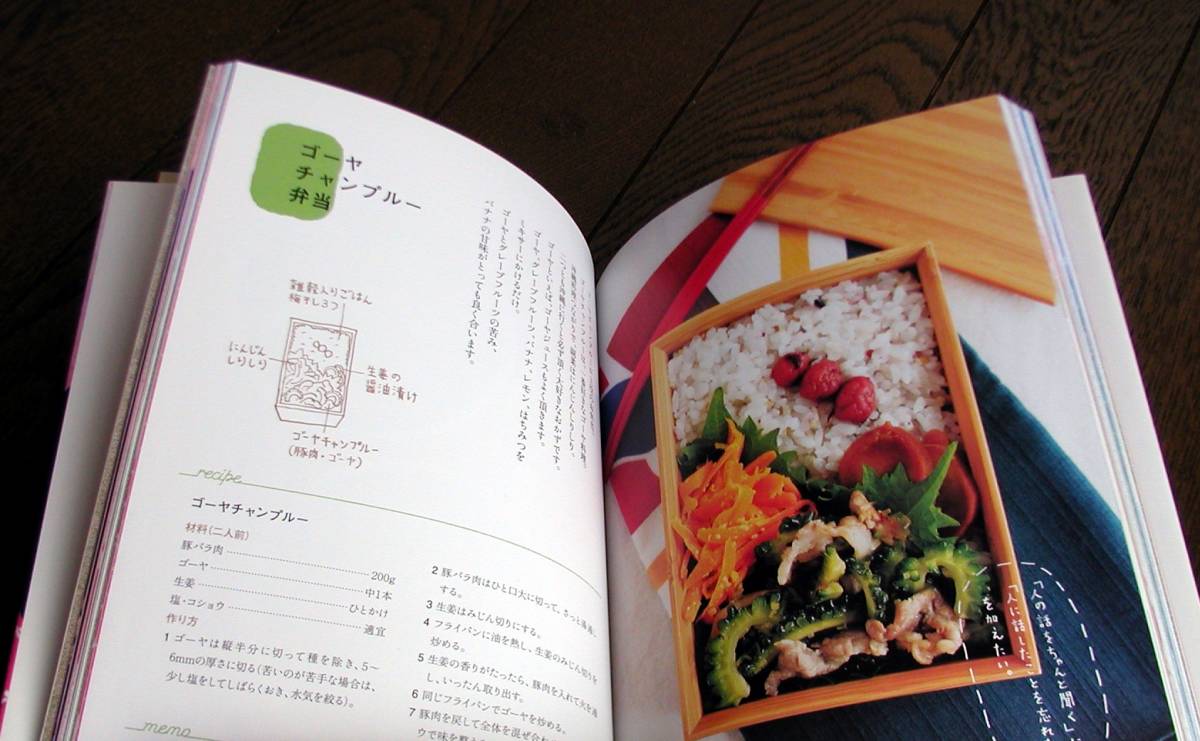 ゴーヤ
チャンプルー
弁当
ゴーヤといえば、ゴーヤジュースもよく頂きます。
ゴーヤ、グレープフルーツ、バナナ、レモン、はちみつを
ミキサーにかけるだけ。
ゴーヤとグレープフルーツの苦み、
バナナの甘味がとっても良く合います。
雑穀入りごはん
梅干し3つ
にんじん
しりしり
生姜の
醤油漬け
ゴーヤチャンプルー
(豚肉・ゴーヤ)
recipe
ゴーヤチャンプルー
材料(二人前)
豚バラ肉 200g
ゴーヤ 中1本
生姜 ひとかけ
塩・コショウ 適宜
作り方
1 ゴーヤは縦半分に切って種を除き、5〜
6mmの厚さに切る(苦いのが苦手な場合は、
少し塩をしてしばらくおき、水気を絞る)。
2 豚バラ肉はひと口大に切って、さっと湯通し
する。
3 生姜はみじん切りにする。
4 フライパンに油を熱し、生姜のみじん切りを
炒める。
5 生姜の香りがたったら、豚肉を入れて火を通
し、いったん取り出す。
6 同じフライパンでゴーヤを炒める。
7 豚肉を戻して全体を混ぜ合わ
memo
「人の話をちゃんと聞く」に
「人に話したことを忘れ
を加えたい。